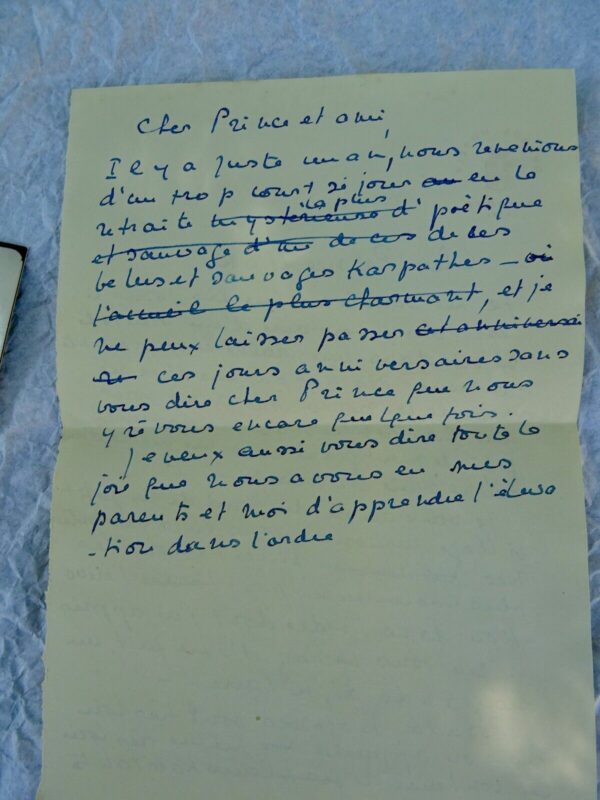 Cher Prince et ami,
Il y a juste un an, nous revenions
d'un trop court séjour au en la
retraite mystérieuse d' la plus poètique
et sauvage d'une de ces de ces
belles et sauvages Karpathes — où
l'accueil le plus charmant, et je
ne peux laisser passer cet anniversai
ces jours anniversaires sans
vous dire cher Prince que nous
y rêvons encore quelque fois.
Je veux aussi vous dire toute la
joie que nous avons eu mes
parents et moi d'apprendre l'éléva
-tion dans l'ordre